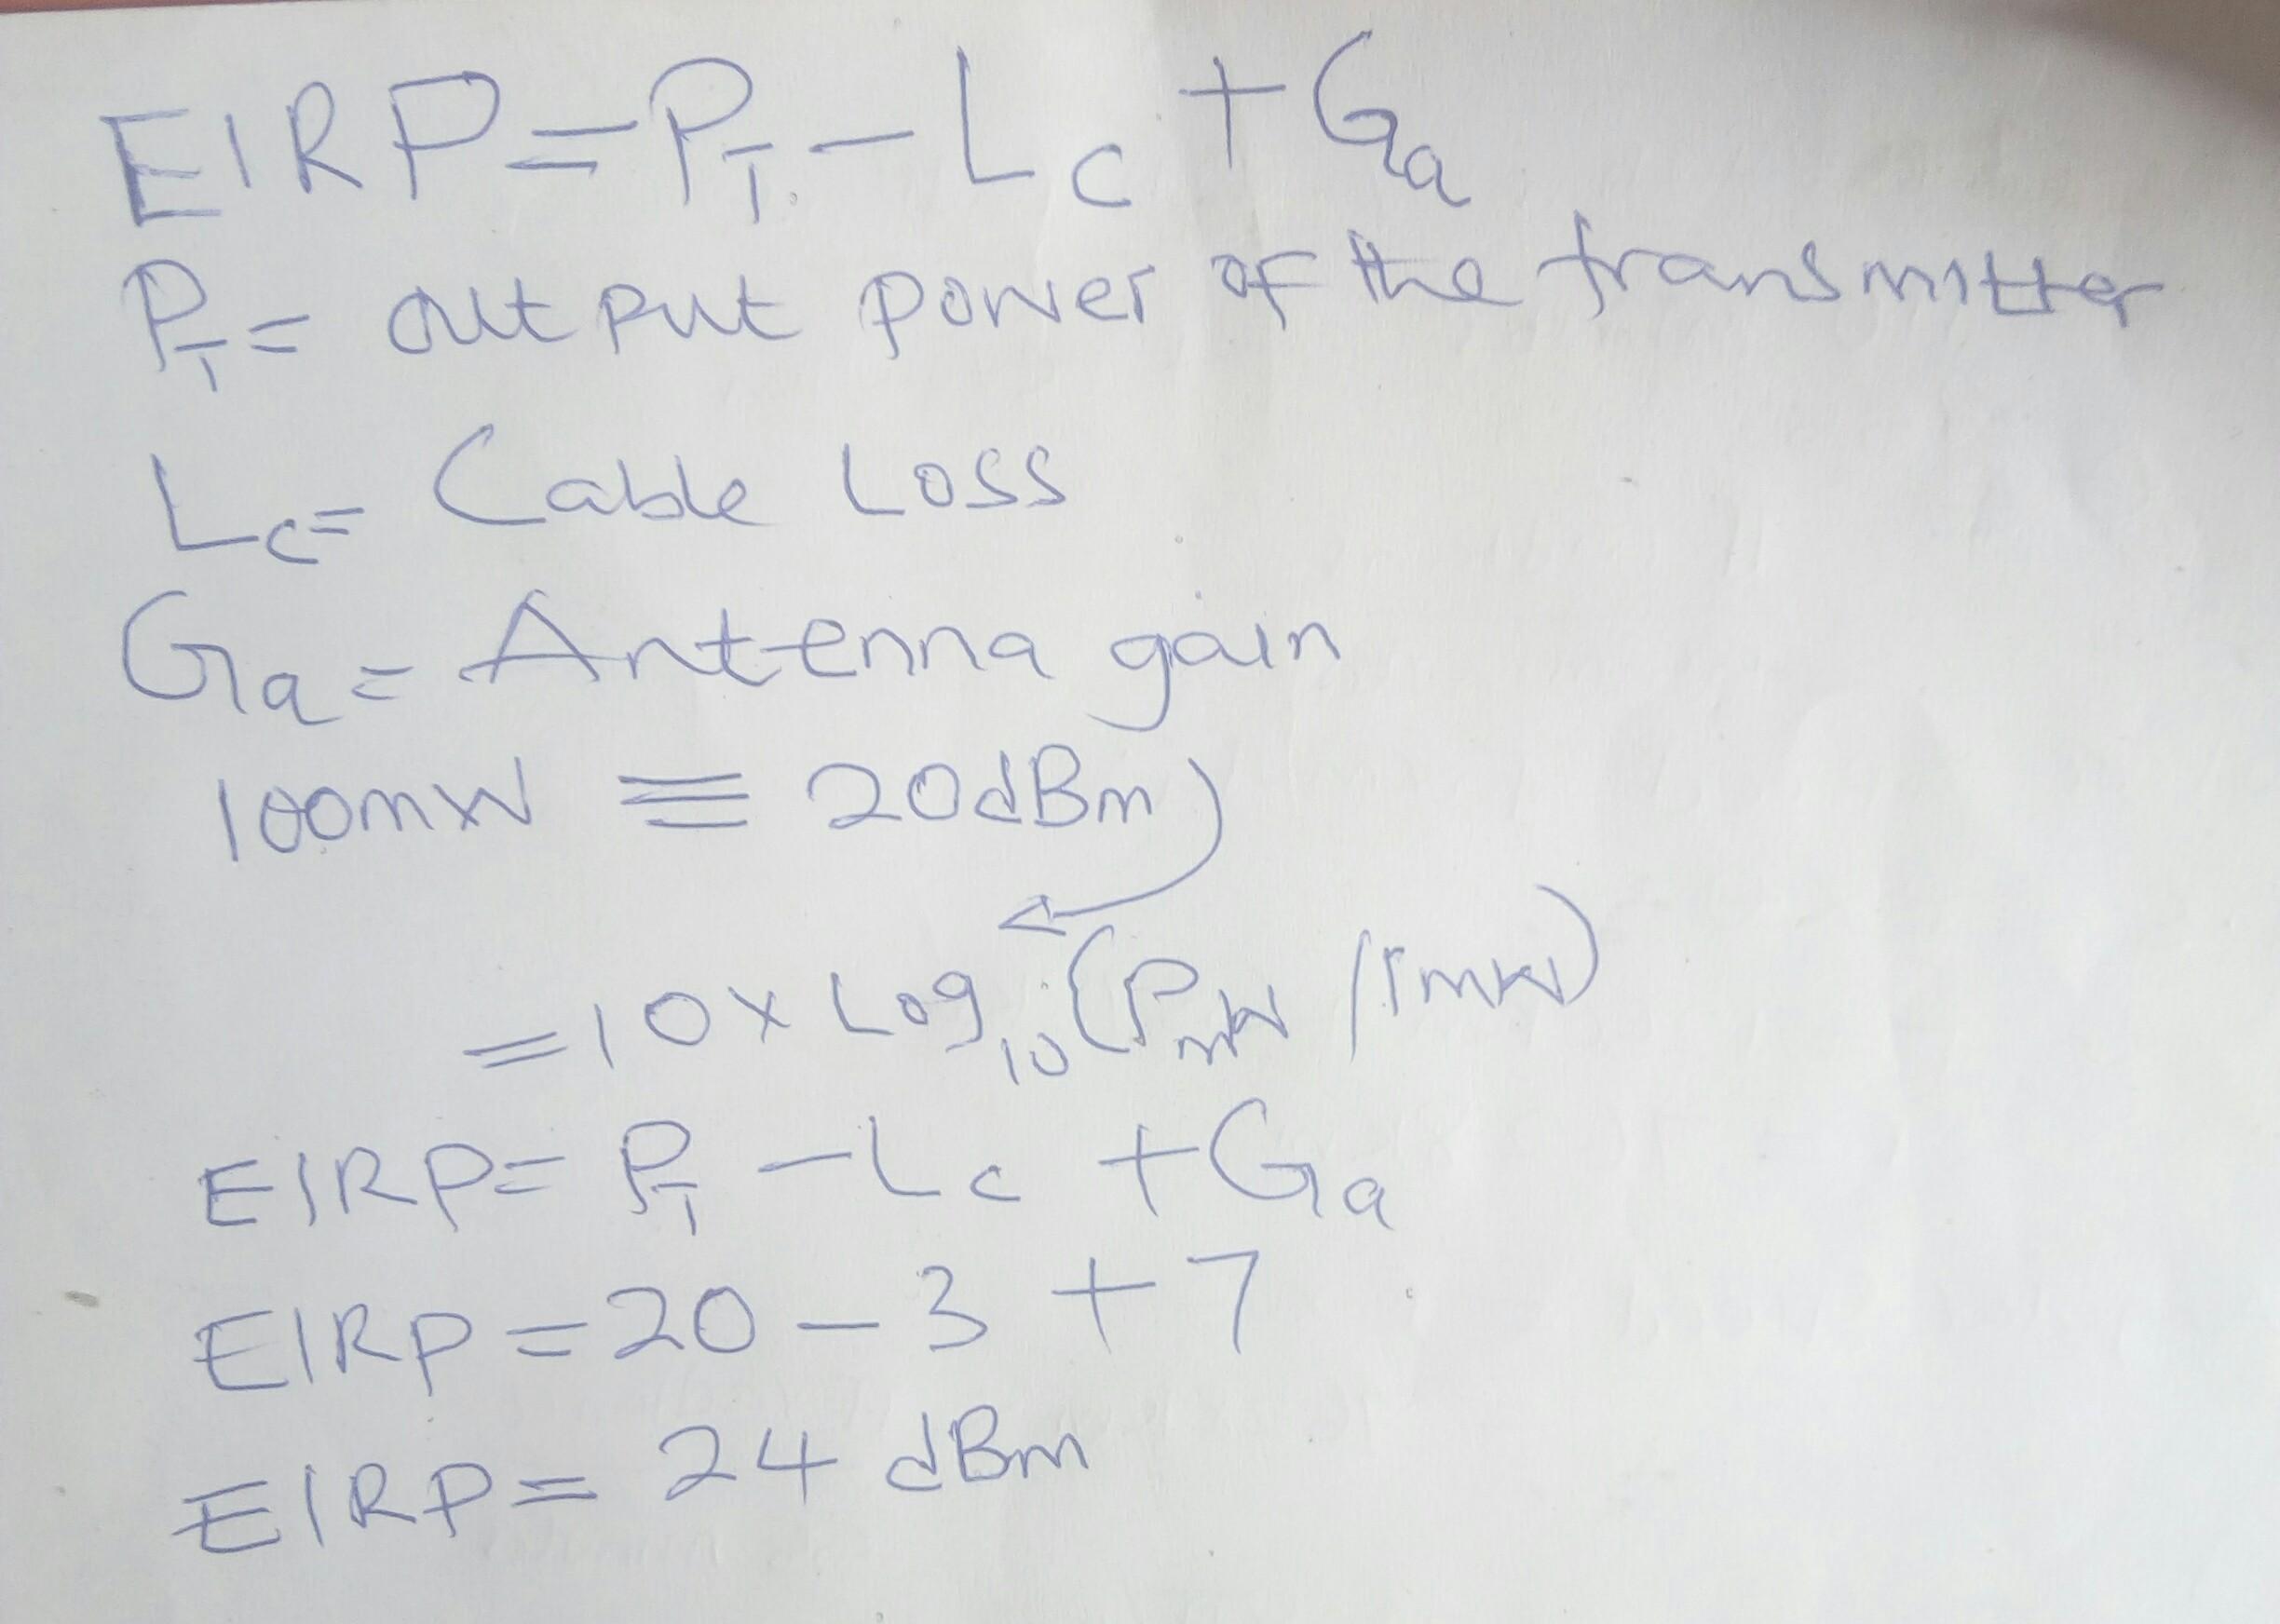 EIRP = P_T - L_C + G_a
P_T = output power of the transmitter
L_C = Cable Loss
G_a = Antenna gain
100mW ≡ 20dBm
= 10 x Log_10 (P_mW / 1mW)
EIRP = P_T - L_C + G_a
EIRP = 20 - 3 + 7
EIRP = 24 dBm